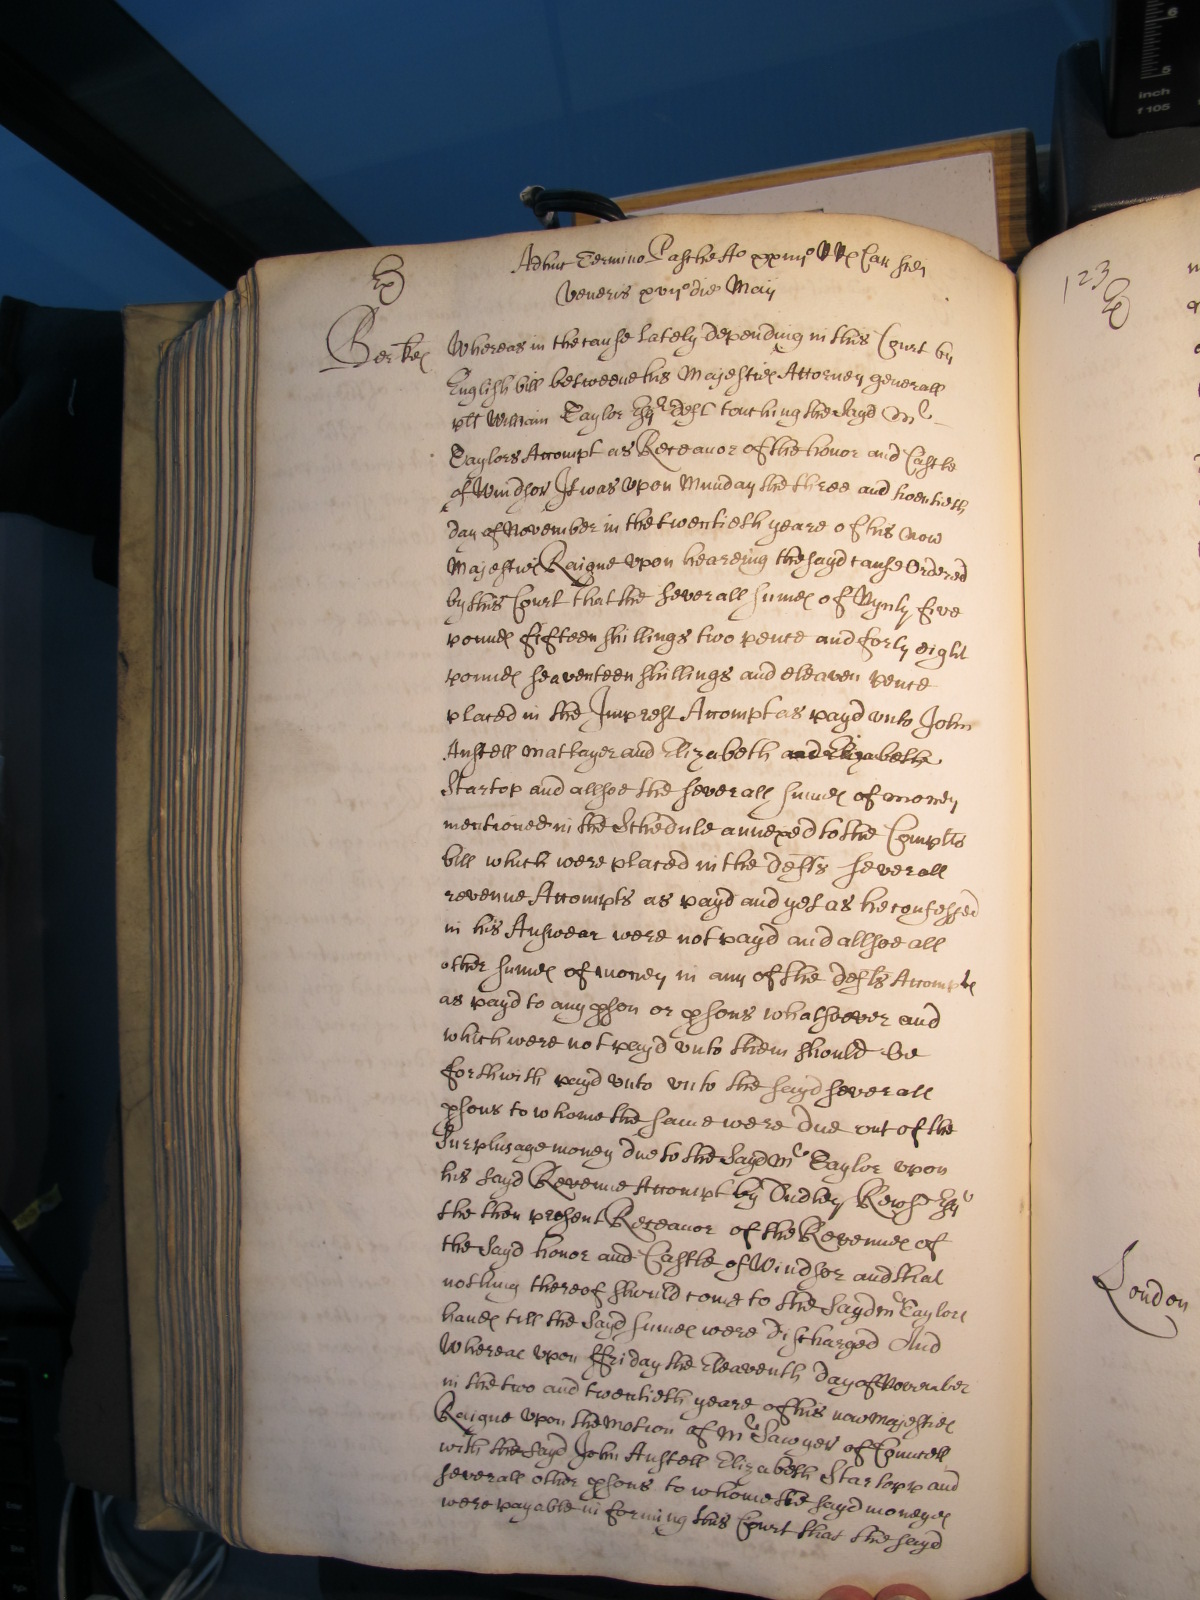 Adhuc Termino Pasche Ao xxiiijo RRs Car scdi
Veneris xvijo die Maij
Berkes
Whereas in the cause lately depending in this Court by
English bill betweene his Majesties Attorney generall
plt William Taylor Esqr deft touching the sayd Mr
Taylors Accompt as Receavor of the honor and Castle
of Windsor It was upon Munday the three and twentieth
day of November in the twentieth yeare of his now
Majesties Raigne upon heareing the sayd cause Ordered
by this Court that the severall sumes of Nynty five
pounds fifteen shillings two pence and forty eight
pounds seaventeen shillings and eleaven pence
placed in the Imprest Accompt as payd unto John
Anstell matlayer and Elizabeth and Elizabeth
Startop and allsoe the severall sumes of money
mentioned in the Schedule annexed to the Complts
bill which were placed in the defts severall
revenue Accompts as payd and yet as he confessed
in his Answear were not payd and allsoe all
other sumes of money in any of the defts Accompts
as payd to any pson or psons whatsoever and
which were not payd unto them should be
forthwith payd unto unto the sayd severall
psons to whome the same were due out of the
Surplusage money due to the sayd Mr Taylor upon
his sayd Revenue Accompt by Dudley Rewse Esqr
the then present Receavor of the Revenues of
the sayd honor and Castle of Windsor and that
nothing thereof should come to the sayd mr Taylors
hands till the sayd sumes were discharged And
Whereas upon ffriday the Eleaventh day of November
in the two and twentieth yeare of his now Majesties
Raigne upon the motion of Mr Sawyer of Councell
with the sayd John Anstell Elizabeth Startopp and
severall other psons to whome the sayd moneyes
were payable in forming this Court that the sayd
123
London
inch
f 105
6
5